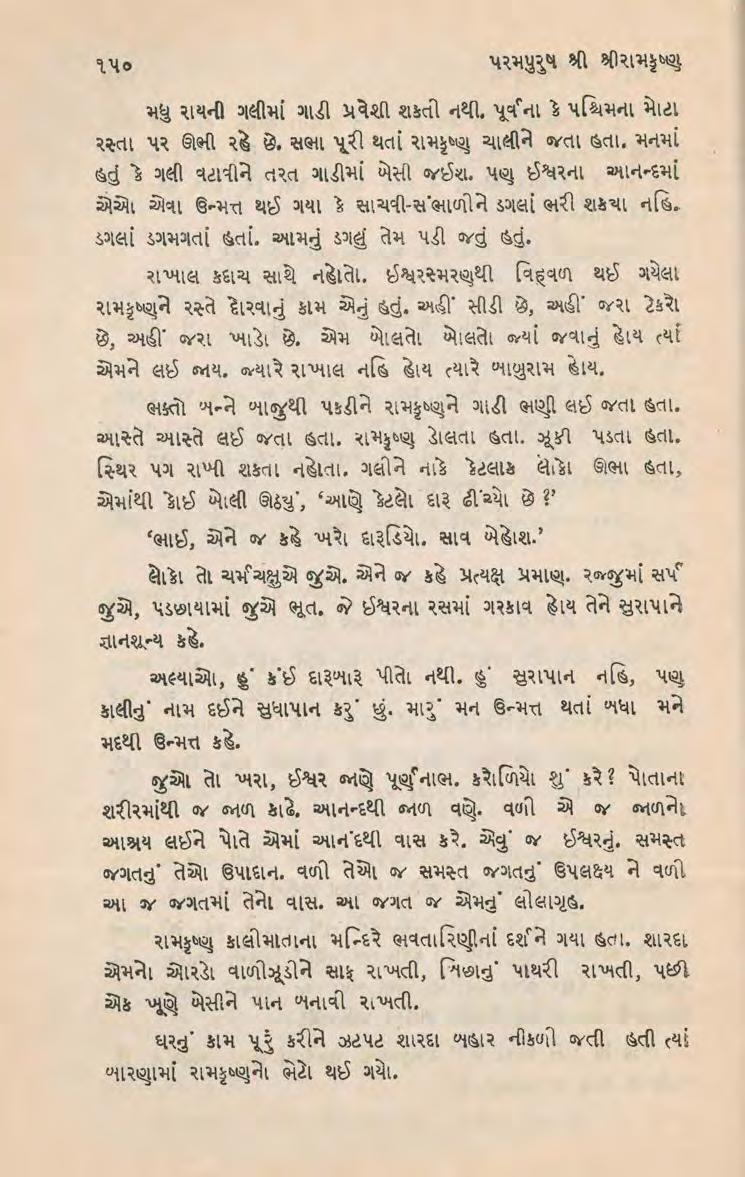 ૧૫૦ પરમપુરુષ શ્રી શ્રીરામકૃષ્ણ
મધુ રાયની ગલીમાં ગાડી પ્રવેશી શકતી નથી. પૂર્વના કે પશ્ચિમના મોટા
રસ્તા પર ઊભી રહે છે. સભા પૂરી થતાં રામકૃષ્ણ ચાલીને જતા હતા. મનમાં
હતું કે ગલી વટાવીને તરત ગાડીમાં બેસી જઈશ. પણ ઈશ્વરના આનન્દમાં
એઓ એવા ઉન્મત્ત થઈ ગયા કે સાચવી-સંભાળીને ડગલાં ભરી શકયા નહિ.
ડગલાં ડગમગતાં હતાં. આમનું ડગલું તેમ પડી જતું હતું.
રાખાલ કદાચ સાથે નહોતો. ઈશ્વરસ્મરણથી વિહ્વળ થઈ ગયેલા
રામકૃષ્ણને રસ્તે દોરવાનું કામ એનું હતું. અહીં સીડી છે, અહીં જરા ટેકરો
છે, અહીં જરા ખાડો છે. એમ બોલતો બોલતો જ્યાં જવાનું હોય ત્યાં
એમને લઈ જાય. જ્યારે રાખાલ નહિ હોય ત્યારે બાબુરામ હોય.
ભક્તો બન્ને બાજુથી પકડીને રામકૃષ્ણને ગાડી ભણી લઈ જતા હતા.
આસ્તે આસ્તે લઈ જતા હતા. રામકૃષ્ણ ડોલતા હતા. ઝૂકી પડતા હતા.
સ્થિર પગ રાખી શકતા નહોતા. ગલીને નાકે કેટલાક લોકો ઊભા હતા,
એમાંથી કોઈ બોલી ઊઠયું, ‘આણે કેટલો દારૂ ઢીંચ્યો છે ?’
‘ભાઈ, એને જ કહે ખરો દારૂડિયો. સાવ બેહોશ.’
લોકો તો ચર્મચક્ષુએ જુએ. એને જ કહે પ્રત્યક્ષ પ્રમાણ. રજ્જુમાં સર્પ
જુએ, પડછાયામાં જુએ ભૂત. જે ઈશ્વરના રસમાં ગરકાવ હોય તેને સુરાપાને
જ્ઞાનશૂન્ય કહે.
અલ્યાઓ, હું કંઈ દારૂબારૂ પીતો નથી. હું સુરાપાન નહિ, પણ
કાલીનું નામ દઈને સુધાપાન કરું છું. મારું મન ઉન્મત્ત થતાં બધા મને
મદથી ઉન્મત્ત કહે.
જુઓ તો ખરા, ઈશ્વર જાણે પૂર્ણનાભ. કરોળિયો શું કરે? પોતાના
શરીરમાંથી જ જાળ કાઢે. આનન્દથી જાળ વણે. વળી એ જ જાળનો
આશ્રય લઈને પોતે એમાં આનંદથી વાસ કરે. એવું જ ઈશ્વરનું. સમસ્ત
જગતનું તેઓ ઉપાદાન. વળી તેઓ જ સમસ્ત જગતનું ઉપલક્ષ્ય ને વળી
આ જ જગતમાં તેનો વાસ. આ જગત જ એમનું લીલાગૃહ.
રામકૃષ્ણ કાલીમાતાના મન્દિરે ભવતારિણીનાં દર્શને ગયા હતા. શારદા
એમનો ઓરડો વાળીઝૂડીને સાફ રાખતી, બિછાનું પાથરી રાખતી, પછી
એક ખૂણે બેસીને પાન બનાવી રાખતી.
ઘરનું કામ પૂરું કરીને ઝટપટ શારદા બહાર નીકળી જતી હતી ત્યાં
બારણામાં રામકૃષ્ણનો ભેટો થઈ ગયો.